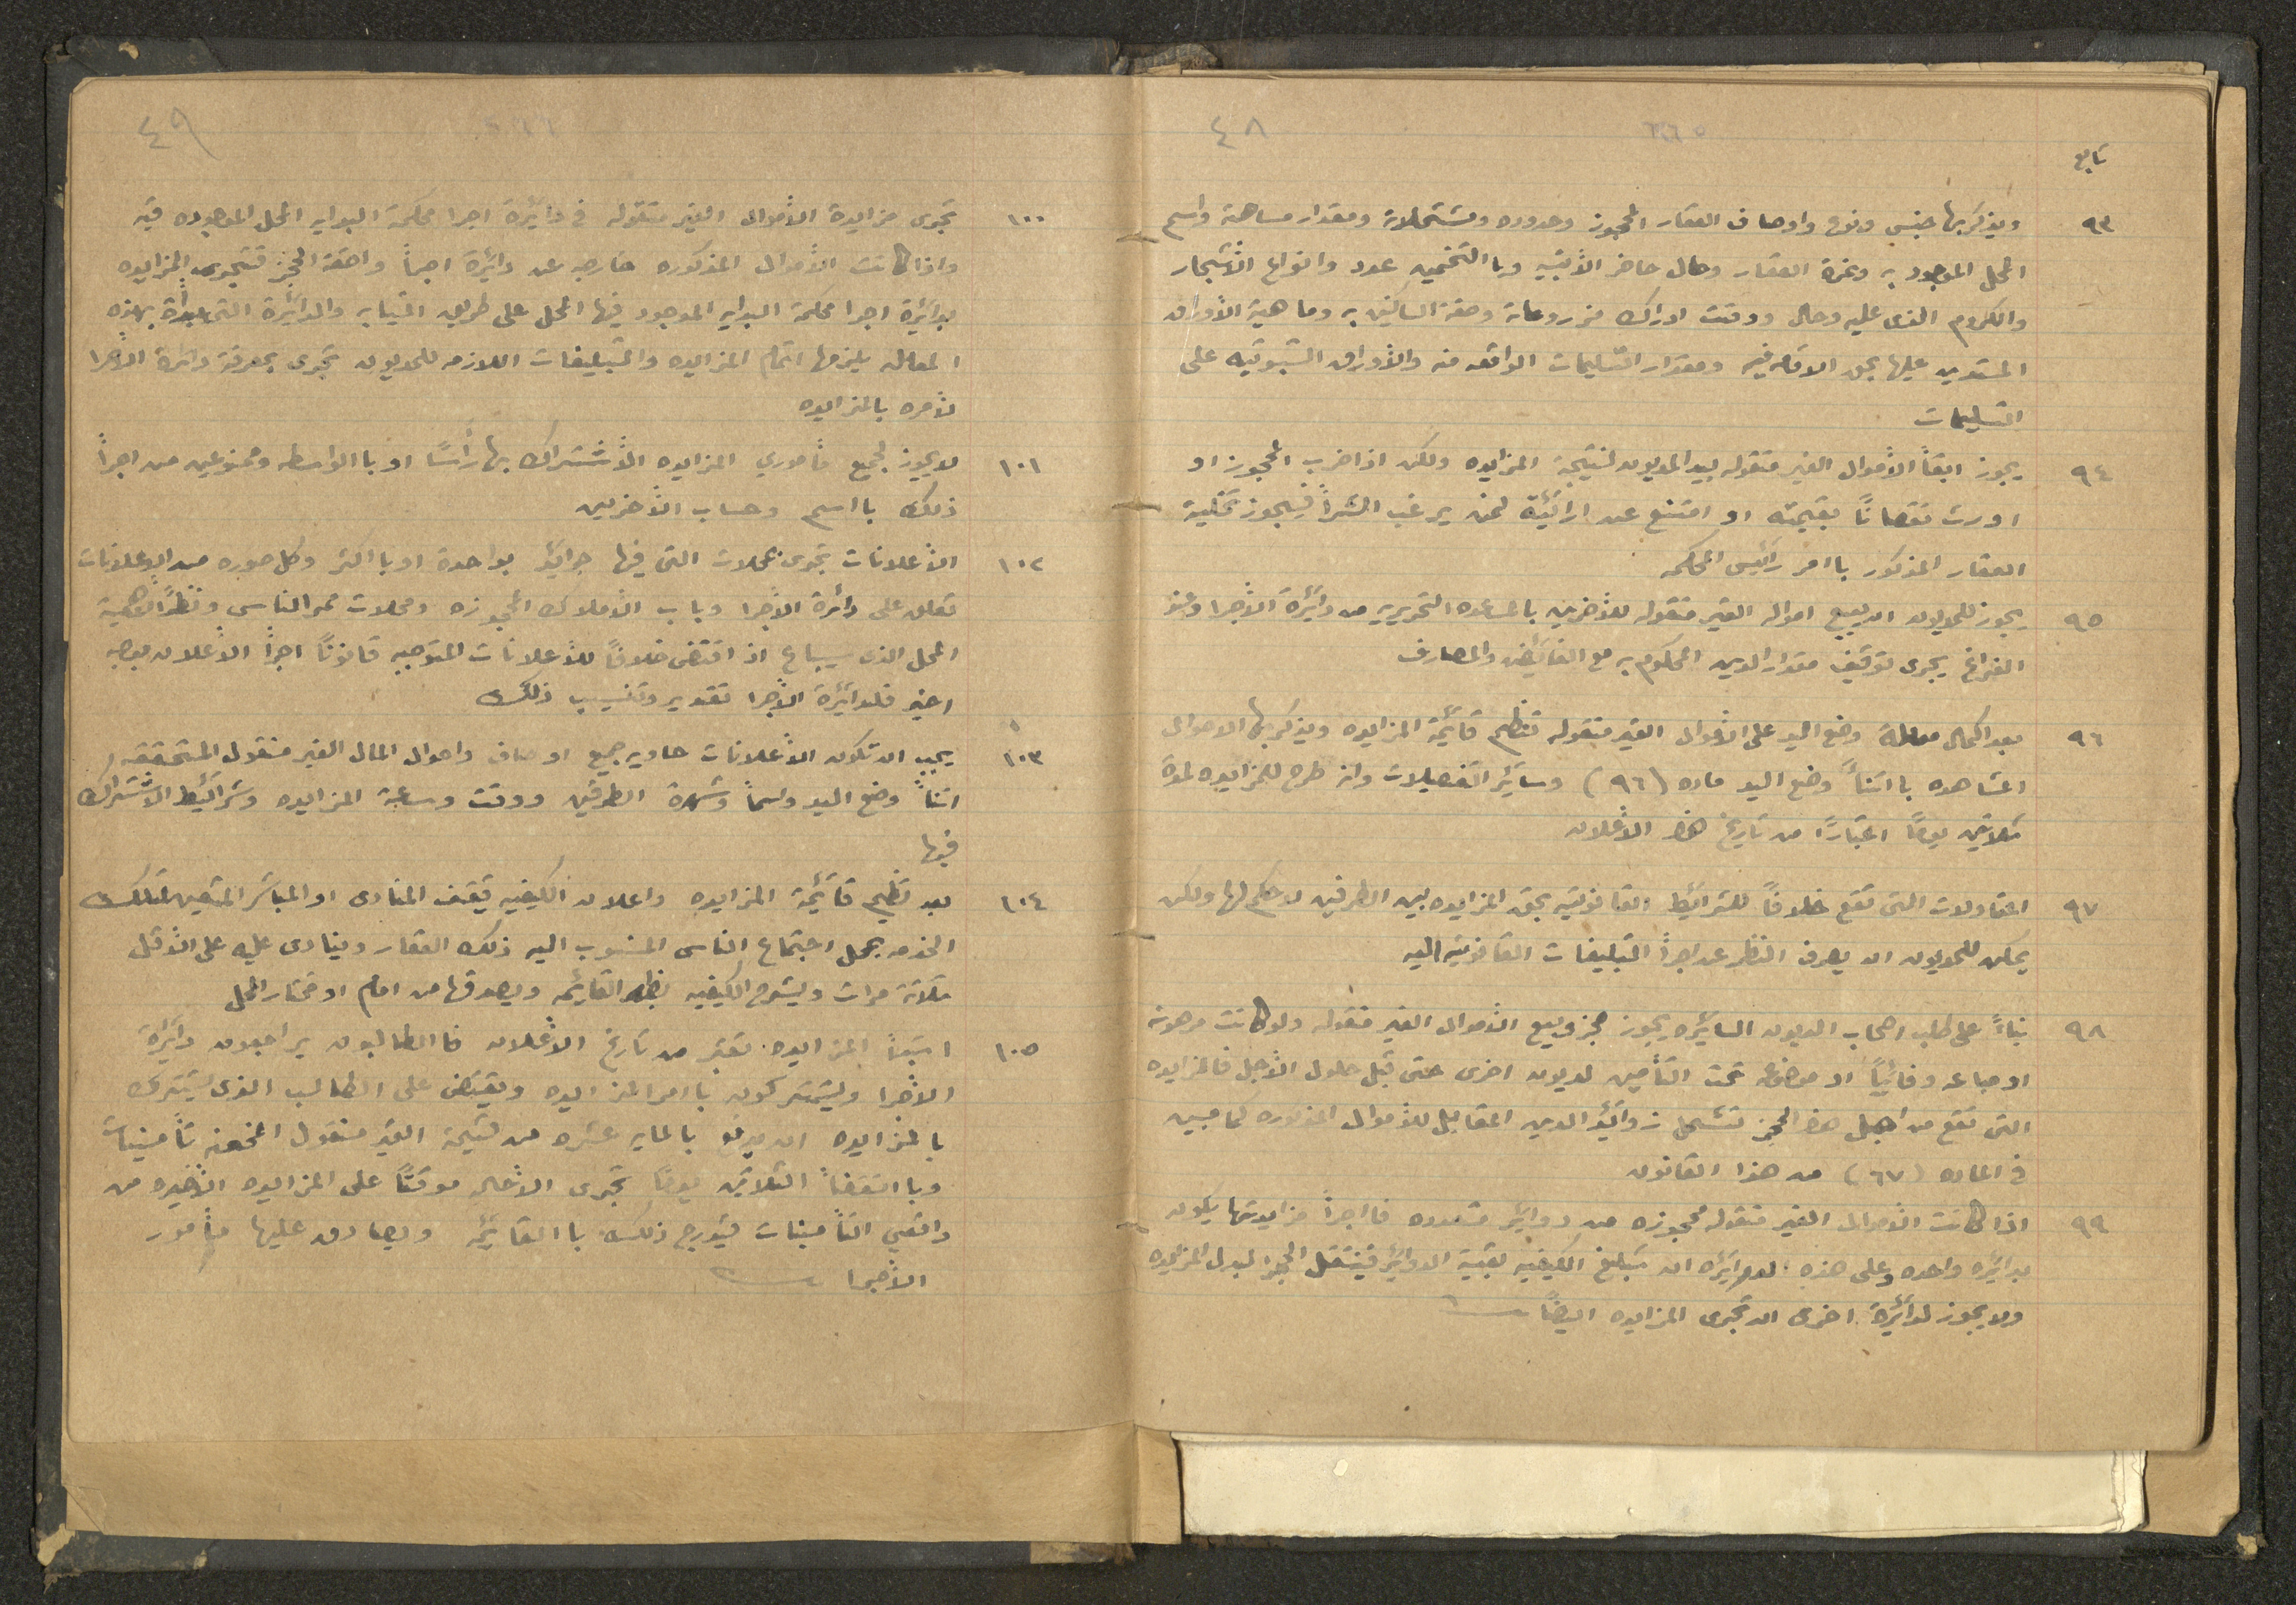 ٤٨
٢٦٥
تابع
٩٣ ويذكر بها جنس ونوع واوصاف العقار المحجوز وحدوده ومشتملاته ومقدار مساحته واسم
المحل الموجود به ونمرة العقار وحال حاضر الأبنيه وباالتخمين عدد وانواع الأشجار
والكروم الذى عليه وحال ووقت ادراك مزروعاته وصفة الساكنين به وماهية الأوراق
المستندين عليها بحق الاقامه فيه ومقدار التسليمات الواقعه منه والأوراق الثبوتيه على
التسليمات
٩٤ يجوز ابقأ الأموال الغير منقوله بيد المديون لنتيجة المزايده ولكن اذا خرب المحجوز او
اورث نقصانًا بقيمته او امتنع عن ارائيته لمن يرغب الشرأ فيجوز تخلية
العقار المذكور باامر رائيس المحكمه
٩٥ يجوز للمديون ان يبيع امواله الغير منقوله للأخرين بالمساعده التحريريه من دائرة الأجرا وعند
الفراغ يجرى توقيف مقدار الدين المحكوم به مع الفائض والمصارف
٩٦ بعد اكمال معاملة وضع اليد على الأموال الغير منقوله تنظم قائمة المزايده ويذكر بها الاحوال
المشاهده بااثنأ وضع اليد ماده (٩٦) وسائر التفصيلات وانه طرح للمزايده لمدة
ثلاثين يومًا اعتبارًا من تاريخ هذا الاعلان
٩٧ المقاولات التى تقع خلافًا للشرائط القانونيه بحق المزايده بين الطرفين لا حكم لها ولكن
يمكن للمديون ان يصرف النظر عن اجرأ التبليغات القانونيه اليه
٩٨ بناءً على طلب اصحاب الديون السائره يجوز حجز وبيع الأموال الغير منقوله ولو كانت مرهونه
او مباعه وفائيًا او موضوعه تحت التأمين لديون اخرى حتى قبل حلول الأجل فالمزايده
التى تقع من اجل هذا الحجز تشمل زوائد الدين المقابل للأموال المذكوره كما مبين
في الماده (٦٧) من هذا القانون
٩٩ اذا كانت الأموال الغير منقوله محجوزه من دوائر متعدده فااجرأ مزايدتها يكون
بدائره واحده وعلى هذه الدائره ان تبليغ الكيفيه لبقية الدوائر فينتقل الحجز لبدل المزايده
ولا يجوز لدائرة اخرى ان تجرى المزايده ايضًا
٤٩
٢٦٦
١٠٠ تجرى مزايدة الأموال الغير منقوله في دائرة اجرا محكمة البدايه المحل الموجوده فيه
واذا كانت الأموال المذكوره خارجه عن دائرة اجرأ واضعة الحجز فتجرى المزايده
بدائرة اجرا محكمة البدايه الموجود فيها المحل على طريق النيابه والدائرة التى بدأة بهذه
المعامله يلزمها اتمام المزايده والتبليغات اللازمه للمديون تجرى بمعرفة دائرة الأجرا
لأمره بالمزايده
١٠١ لايجوز لجميع مأموري المزايده الأشتراك بها رأسًا او باالواسطه وممنوعين من اجرأ
ذلك بااسم وحساب الأخرين
١٠٢ الأعلانات تجرى بمحلات التى فيها جرائد بواحدة او بااكثر وكل صوره من الاعلانات
تعلق على دائرة الأجرا وباب الأملاك المحجوزه ومحلات ممر الناس ونظرًا لأهمية
المحل الذى سيباع اذ اقتضى خلافًا للأعلانات المتوجبه قانونًا اجرأ الأعلان بوجه
اخر فلدائرة الأجرا تقدير وتنسيب ذلك
١٠٣ يجب ان تكون الأعلانات حاويه جميع اوصاف واحوال المال الغير منقول المتحققه
اثنأ وضع اليد واسمأ وشهرة الطرفين ووقت وساعة المزايده وشرائط الأشتراك
فيها
١٠٤ بعد تنظيم قائمة المزايده واعلان الكيفيه يقف المنادى او المباشر المتعين لتلك
الخدمه بمحل اجتماع الناس المنسوب اليه ذلك العقار وينادى عليه على الأقل
ثلاثة مرات ويشرح الكيفيه بظهر القائمه ويصدقها من امام او مختار المحل
١٠٥ ابتدأ المزايده تعتبر من تاريخ الأعلان فاالطالبون يراجعون دائرة
الأجرا ويشتركون باامر المزايده ويقتضى على الطالب الذى يشترك
بالمزايده ان يدفع بالمايه عشره من قيمة الغير منقول المخمنه تأمينات
وباانقضأ الثلاثين يومًا تجرى الأحاله موقتًا على المزايده الأخيره من
دافعي التأمينات فيدرج ذلك باالقائمه ويصادق عليها مأمور
الأجرا